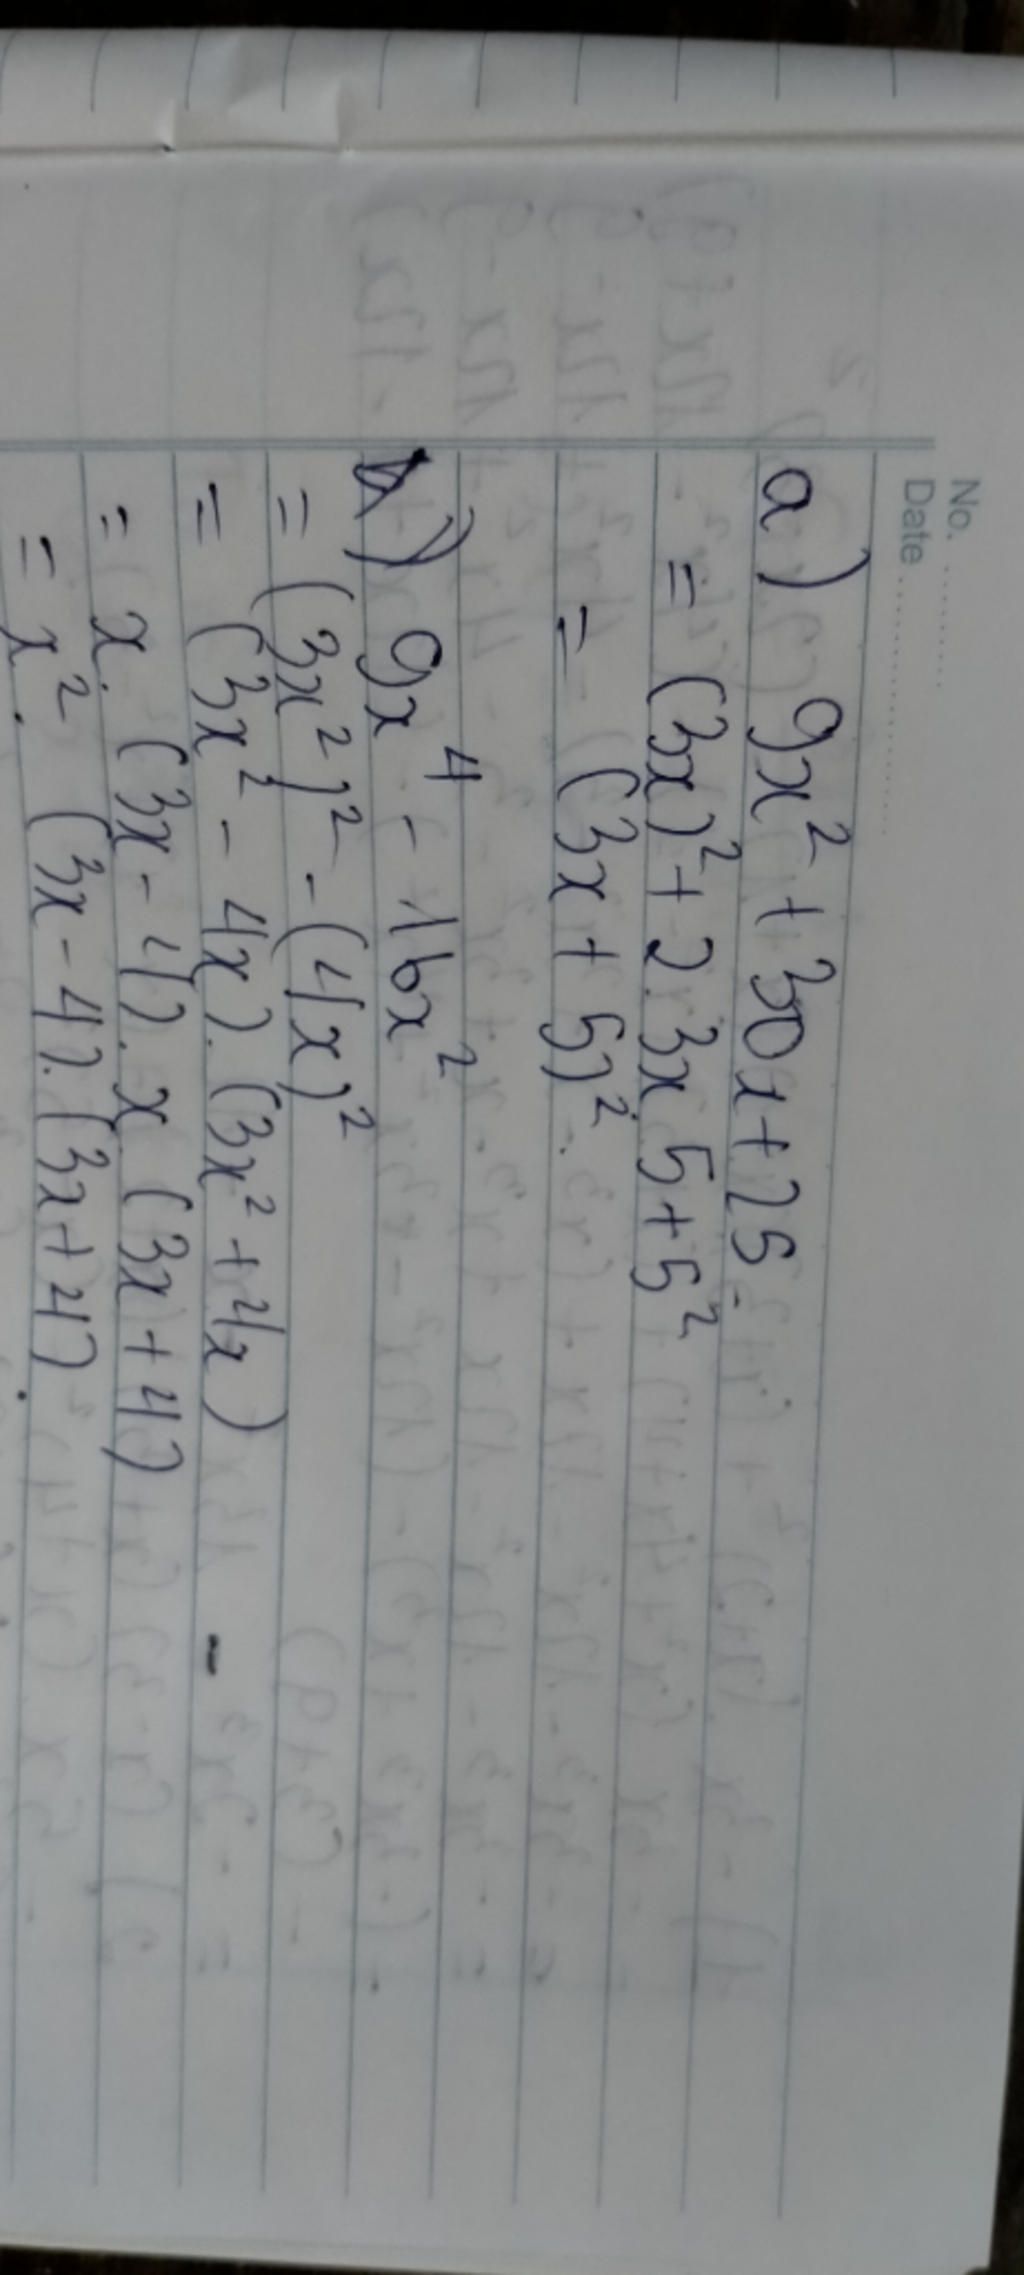 No. ............
Date ........................
a) 9x² + 30x + 25
= (3x)² + 2.3x.5 + 5²
= (3x + 5)².
b) 9x⁴ - 16x²
= (3x²)² - (4x)²
= (3x² - 4x).(3x² + 4x)
= x.(3x - 4).x.(3x + 4)
= x².(3x - 4).(3x + 4)